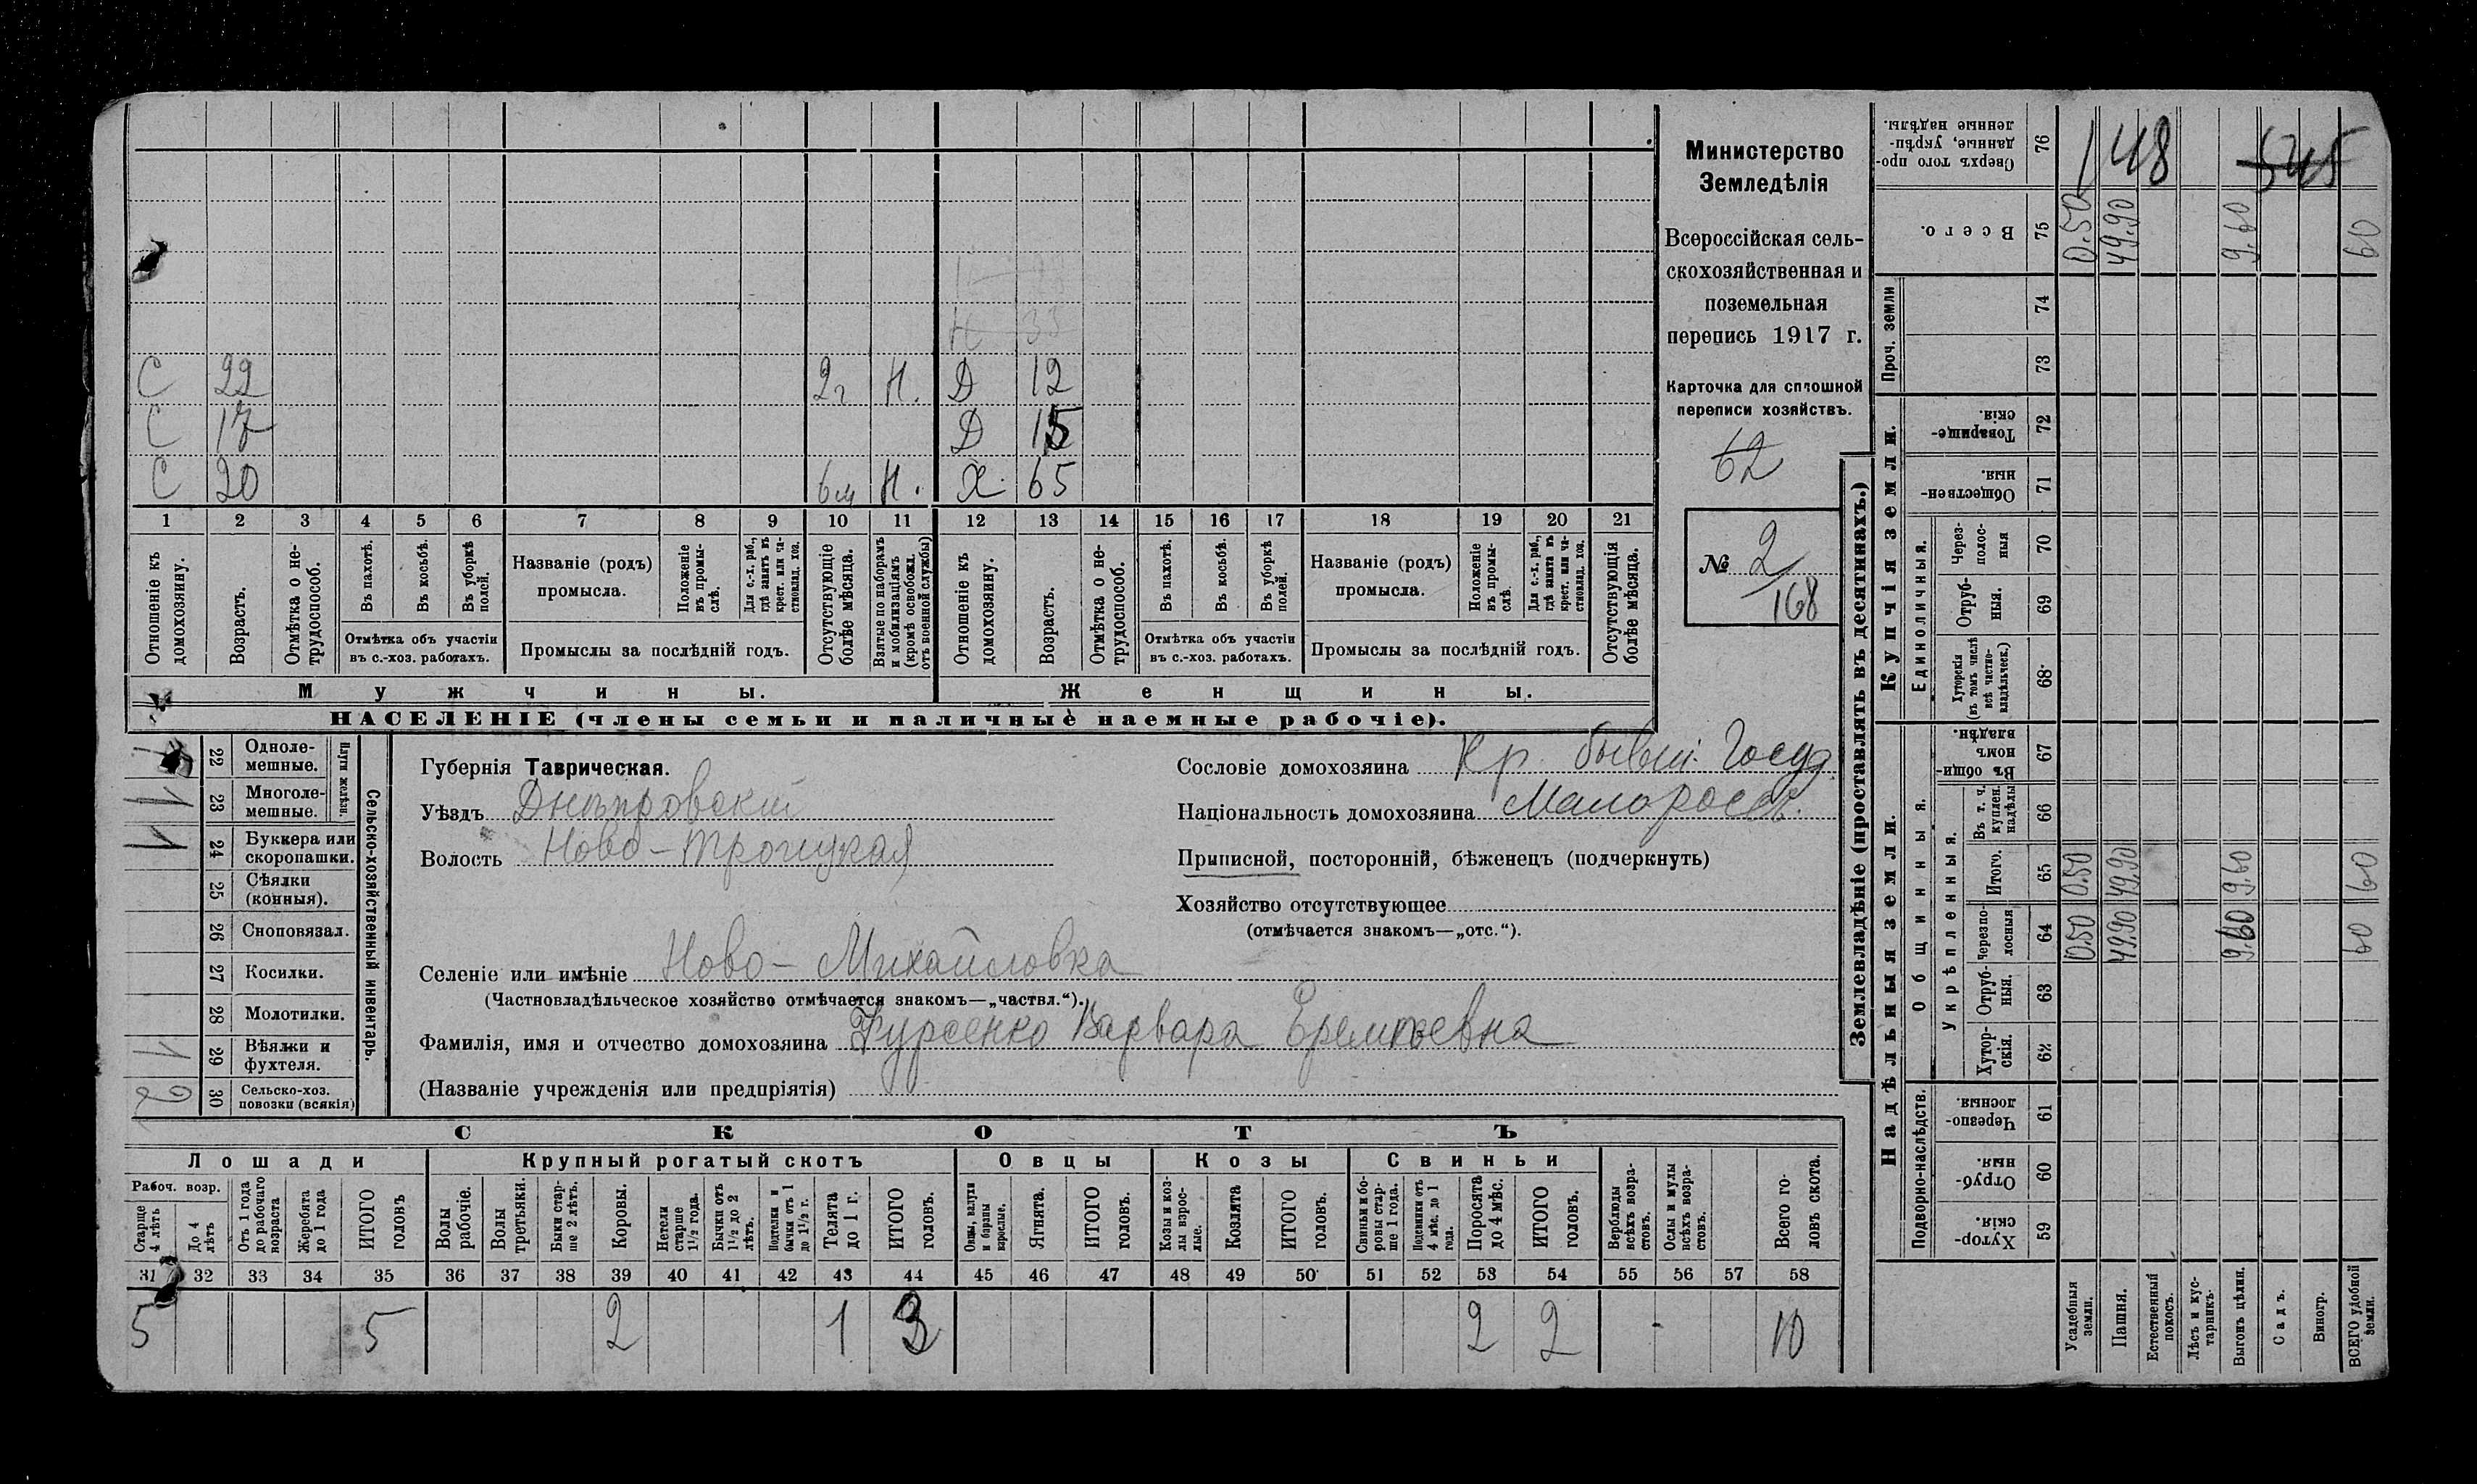 Министерство
Земледѣлія
Всероссійская сель-
скохозяйственная и
поземельная
перепись 1917 г.
Карточка для сплошной
переписи хозяйствъ.
62
№ 2/168
С 22 2г Н. Д 12
С 17 Д 15
С 20 6м Н. Х. 65
1 2 3 4 5 6 7 8 9 10 11 12 13 14 15 16 17 18 19 20 21
Отношеніе къ домохозяину.
Возрастъ.
Отмѣтка о не-трудоспособ.
Въ пахотѣ.
Въ косьбѣ.
Въ уборкѣ полей.
Отмѣтка объ участіи
въ с.-хоз. работахъ.
Названіе (родъ)
промысла.
Положеніе въ промы-слѣ.
Для с.-х. раб., гдѣ занятъ въ крест. или ча-стновлад. хоз.
Промыслы за послѣдній годъ.
Отсутствующіе болѣе мѣсяца.
Взятые по наборамъ и мобилизаціямъ (кромѣ освобожд. отъ военной службы)
Отношеніе къ домохозяину.
Возрастъ.
Отмѣтка о не-трудоспособ.
Въ пахотѣ.
Въ косьбѣ.
Въ уборкѣ полей.
Отмѣтка объ участіи
въ с.-хоз. работахъ.
Названіе (родъ)
промысла.
Положеніе въ промы-слѣ.
Для с.-х. раб., гдѣ занята въ крест. или ча-стновлад. хоз.
Промыслы за послѣдній годъ.
Отсутствующія болѣе мѣсяца.
Мужчины. Женщины.
НАСЕЛЕНІЕ (члены семьи и наличные наемные рабочіе).
Сельско-хозяйственный инвентарь.
Плуги желѣзн.
22 Одноле-мешные.
1 23 Многоле-мешные.
1 24 Буккера или скоропашки.
25 Сѣялки (конныя).
26 Сноповязал.
27 Косилки.
28 Молотилки.
1 29 Вѣялки и фухтеля.
2 30 Сельско-хоз. повозки (всякія)
Губернія Таврическая.
Уѣздъ Днѣпровскій
Волость Ново-Троицкая
Сословіе домохозяина Кр. бывш. Госуд.
Національность домохозяина Малороссъ.
Приписной, посторонній, бѣженецъ (подчеркнуть)
Хозяйство отсутствующее
(отмѣчается знакомъ—„отс.“).
Селеніе или имѣніе Ново-Михайловка
(Частновладѣльческое хозяйство отмѣчается знакомъ—„частвл.“).
Фамилія, имя и отчество домохозяина Варвара Еремѣевна
(Названіе учрежденія или предпріятія)
СКОТЪ
Лошади Крупный рогатый скотъ Овцы Козы Свиньи
Рабоч. возр.
Старше 4 лѣтъ
До 4 лѣтъ
Отъ 1 года до рабочаго возраста
Жеребята до 1 года
ИТОГО головъ
Волы рабочіе.
Волы тротьяки.
Быки стар-ше 2 лѣтъ.
Коровы.
Нетели старше 1½ года.
Бычки отъ 1½ до 2 лѣтъ.
Подтелки и бычки отъ 1 до 1½ г.
Телята до 1 г.
ИТОГО головъ.
Овцы, валухи и бараны взрослые.
Ягнята.
ИТОГО головъ.
Козы и коз-лы взрос-лые.
Козлята
ИТОГО головъ.
Свиньи и бо-ровы стар-ше 1 года.
Подсвинки отъ 4 мѣс. до 1 года.
Поросята до 4 мѣс.
ИТОГО головъ.
Верблюды всѣхъ возра-стовъ.
Ослы и мулы всѣхъ возра-стовъ.
Всего го-ловъ скота.
31 32 33 34 35 36 37 38 39 40 41 42 43 44 45 46 47 48 49 50 51 52 53 54 55 56 57 58
5 5 2 1 3 2 2 10
Землевладѣніе (проставлять въ десятинахъ.)
Надѣльныя земли. Купчія земли. Проч. земли
Подворно-наслѣдств.
Общинныя.
Укрѣпленныя.
Единоличныя.
59 Хутор-скія.
60 Отруб-ныя.
61 Черезпо-лосныя.
62 Хутор-скія.
63 Отруб-ныя.
64 Черезпо-лосныя 0.50 49.90 9.60 60
65 Итого. 0.50 49.90 9.60 60
66 Въ т. ч. куплен. надѣлы
67 Въ общин-номъ владѣн.
68 Хуторскія (въ томъ числѣ всѣ частно-владѣльческ.)
69 Отруб-ныя.
70 Через-полос-ныя
71 Обществен-ныя.
72 Товарище-скія.
73
74
75 Всего. 0.50 49.90 9.60 60
76 Сверхъ того про-данные, укрѣп-ленные надѣлы.
148
545
Усадебныя земли.
Пашня.
Естественный покосъ.
Лѣсъ и кус-тарникъ.
Выгонъ цѣлин.
Садъ.
Виногр.
ВСЕГО удобной земли.